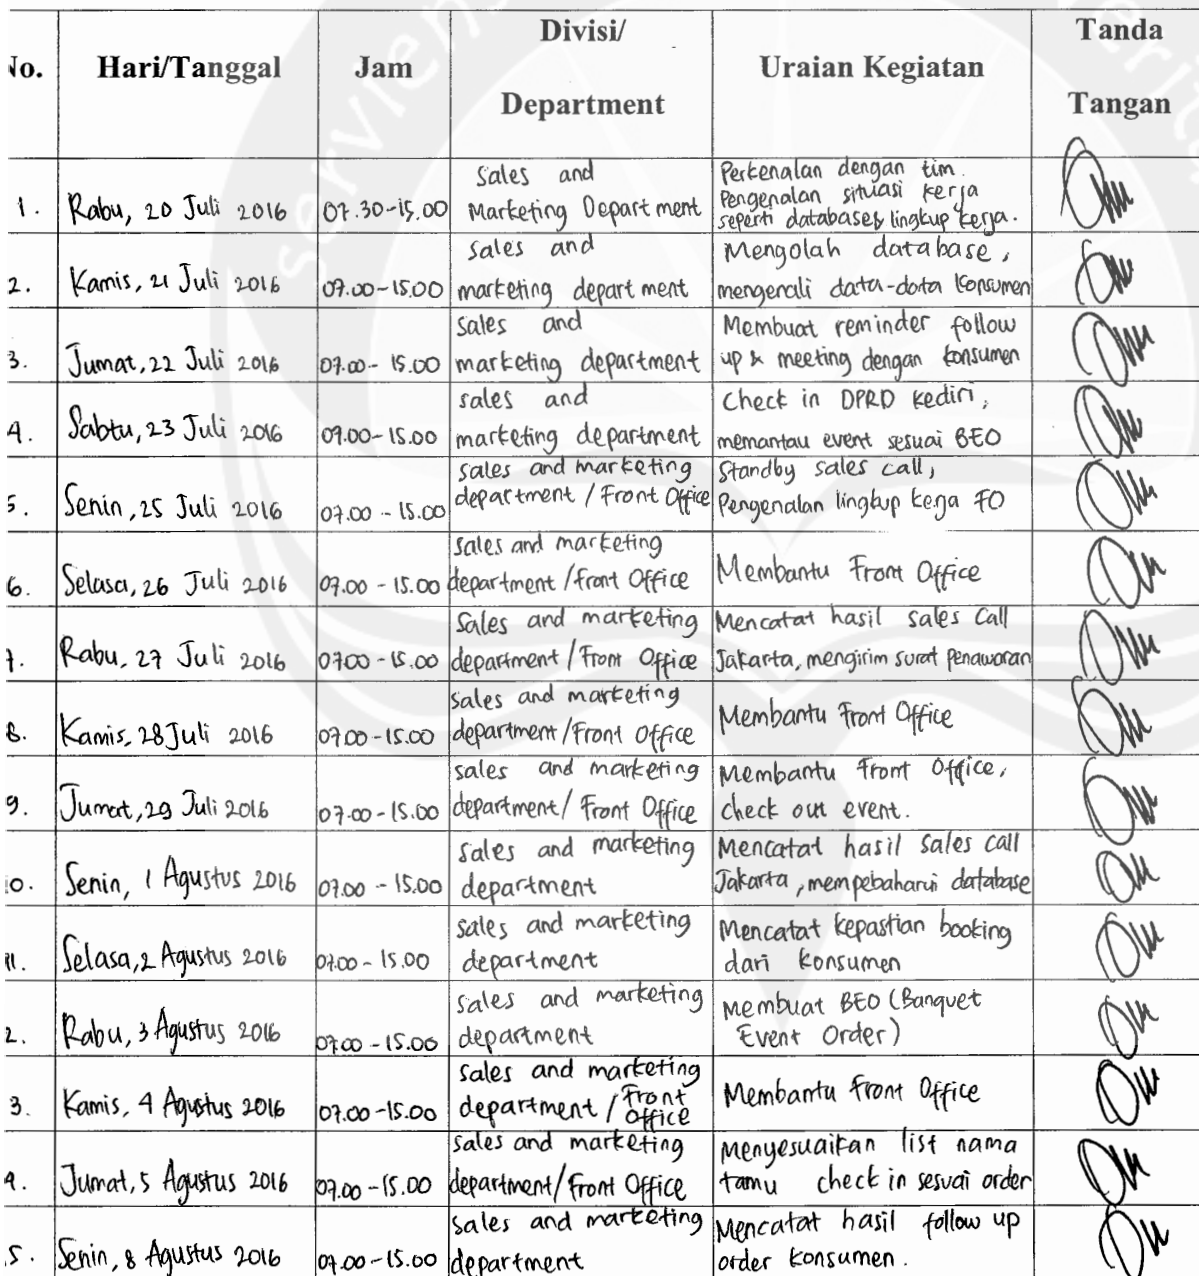 No. Hari/Tanggal Jam Divisi/ Department Uraian Kegiatan Tanda Tangan
1. Rabu, 20 Juli 2016 07.30-15.00 Sales and Marketing Department Perkenalan dengan tim. Pengenalan situasi kerja seperti database & lingkup kerja.
2. Kamis, 21 Juli 2016 07.00-15.00 sales and marketing department Mengolah database, mengenali data-data konsumen
3. Jumat, 22 Juli 2016 07.00-15.00 Sales and marketing department Membuat reminder follow up & meeting dengan konsumen
4. Sabtu, 23 Juli 2016 07.00-15.00 sales and marketing department Check in DPRD Kediri, memantau event sesuai BEO
5. Senin, 25 Juli 2016 07.00-15.00 sales and marketing department / Front Office Standby sales call, Pengenalan lingkup kerja FO
6. Selasa, 26 Juli 2016 07.00-15.00 sales and marketing department / Front Office Membantu Front Office
7. Rabu, 27 Juli 2016 0700-15.00 Sales and marketing department / Front Office Mencatat hasil sales call Jakarta, mengirim surat penawaran
8. Kamis, 28 Juli 2016 07.00-15.00 sales and marketing department / Front Office Membantu Front Office
9. Jumat, 29 Juli 2016 07.00-15.00 sales and marketing department / Front Office Membantu Front Office, check out event.
10. Senin, 1 Agustus 2016 07.00-15.00 sales and marketing department Mencatat hasil sales call Jakarta, mempebaharui database
11. Selasa, 2 Agustus 2016 07.00-15.00 sales and marketing department Mencatat kepastian booking dari konsumen
2. Rabu, 3 Agustus 2016 07.00-15.00 sales and marketing department Membuat BEO (Banquet Event Order)
3. Kamis, 4 Agustus 2016 07.00-15.00 sales and marketing department / Front Office Membantu Front Office
4. Jumat, 5 Agustus 2016 07.00-15.00 sales and marketing department / Front Office Menyesuaikan list nama tamu check in sesuai order
5. Senin, 8 Agustus 2016 07.00-15.00 sales and marketing department Mencatat hasil follow up order konsumen.